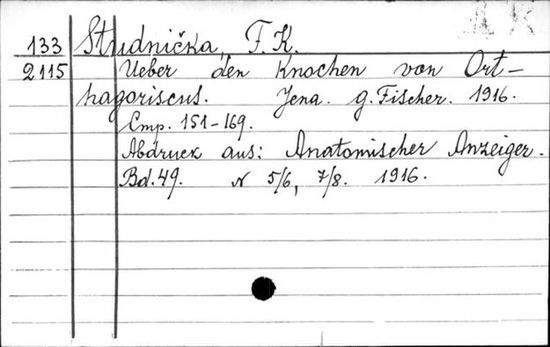 133 Studnička, F. K.
2115 Ueber den Knochen von Ort-
hagoriscus. Jena. G. Fischer. 1916.
Стр. 151-169.
Abdruck aus: Anatomischer Anzeiger.
Bd. 49. N 5/6, 7/8. 1916.